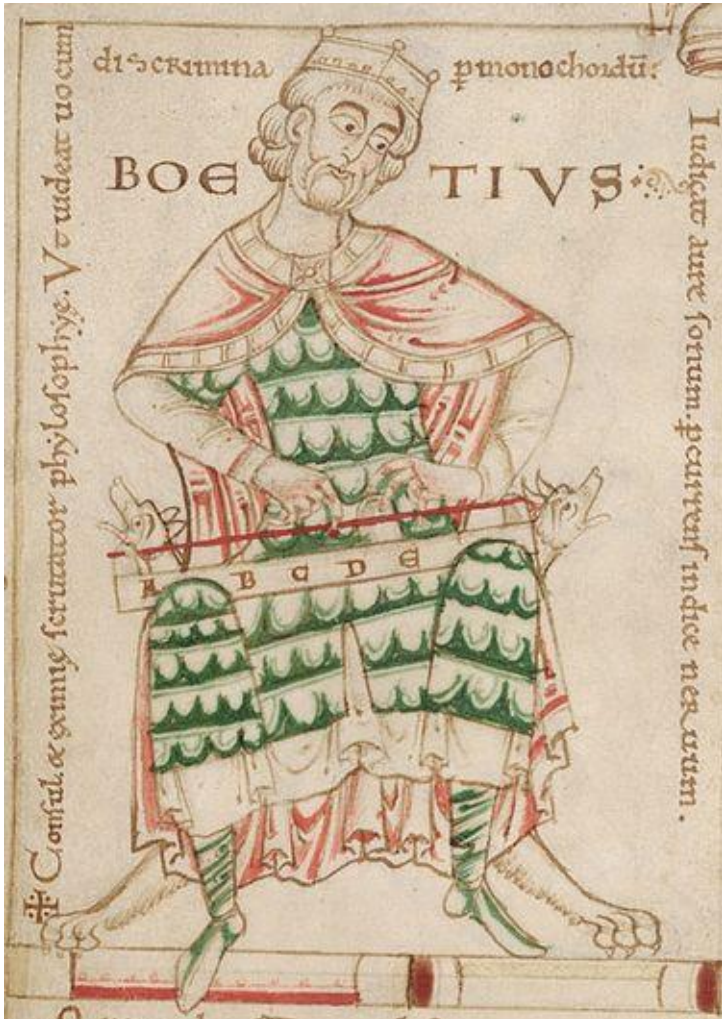 Consul. & eximię scrutator phylosophyę. Vt uideat uocum
discrimina ꝑ monochordū:
BOE TIVS
Iudicat aure sonum. ꝑcurrens indice neruum.
A B C D E